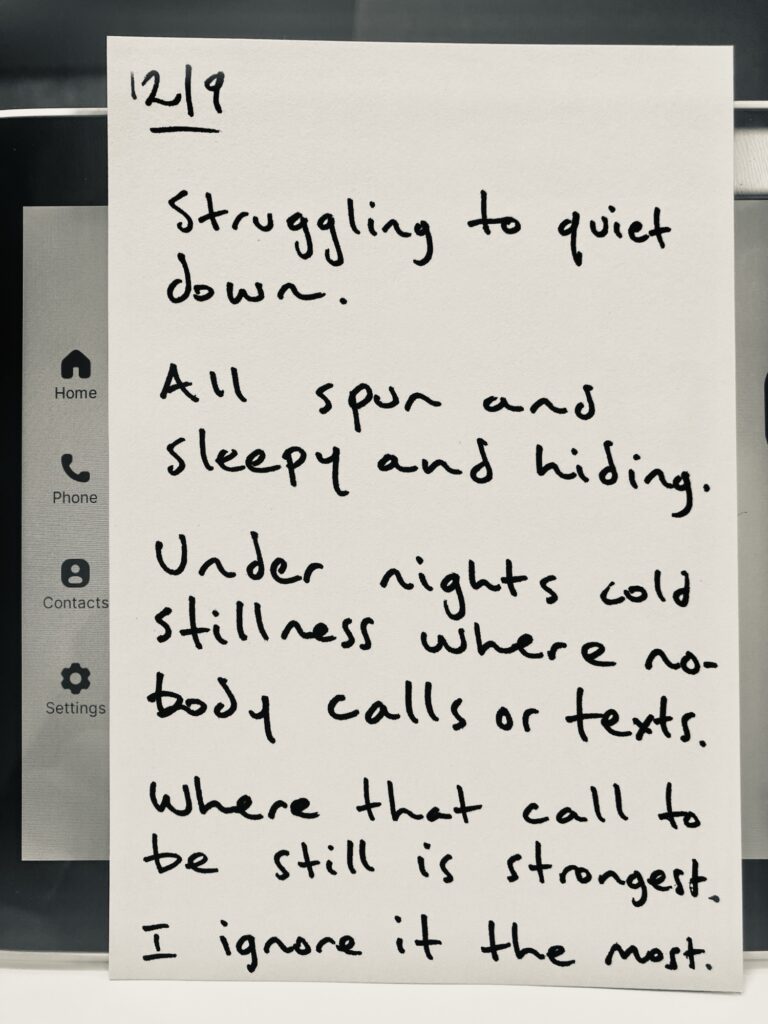 12/9
Struggling to quiet
down.
All spun and
sleepy and hiding.
Under nights cold
stillness where no-
body calls or texts.
Where that call to
be still is strongest.
I ignore it the most.
Home
Phone
Contacts
Settings